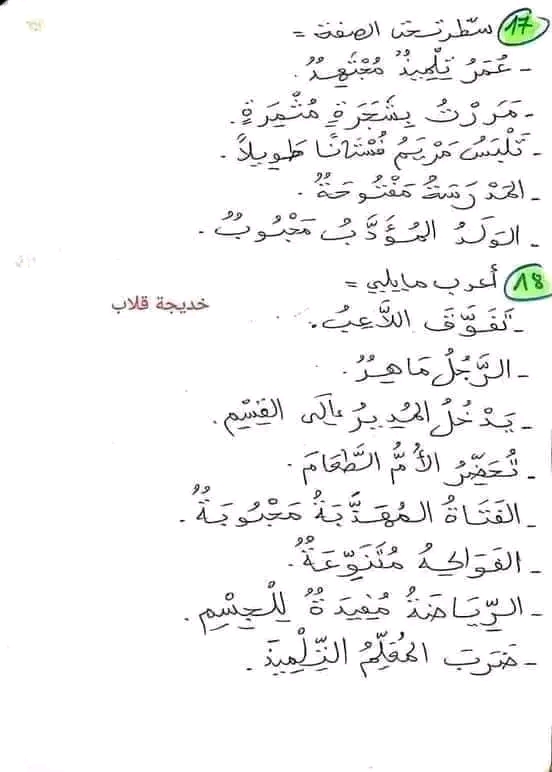 17 سطّر تحت الصفة =
- عُمَرُ تِلْمِيذٌ مُجْتَهِدٌ.
- مَرَرْتُ بِشَجَرَةٍ مُثْمِرَةٍ.
- تَلْبَسُ مَرْيَمُ فُسْتَانًا طَوِيلاً.
- المَدْرَسَةُ مَفْتُوحَةٌ.
- الوَلَدُ المُؤَدَّبُ مَحْبُوبٌ.
18 أعرب مايلي =
خديجة قلاب
- تَفَوَّقَ اللاَّعِبُ.
- الرَّجُلُ مَاهِرٌ.
- يَدْخُلُ المُدِيرُ إِلَى القِسْمِ.
- تُحَضِّرُ الأُمُّ الطَّعَامَ.
- الفَتَاةُ المُهَذَّبَةُ مَحْبُوبَةٌ.
- الفَوَاكِهُ مُتَنَوِّعَةٌ.
- الرِّيَاضَةُ مُفِيدَةٌ لِلْجِسْمِ.
- ضَرَبَ المُعَلِّمُ التِّلْمِيذَ.